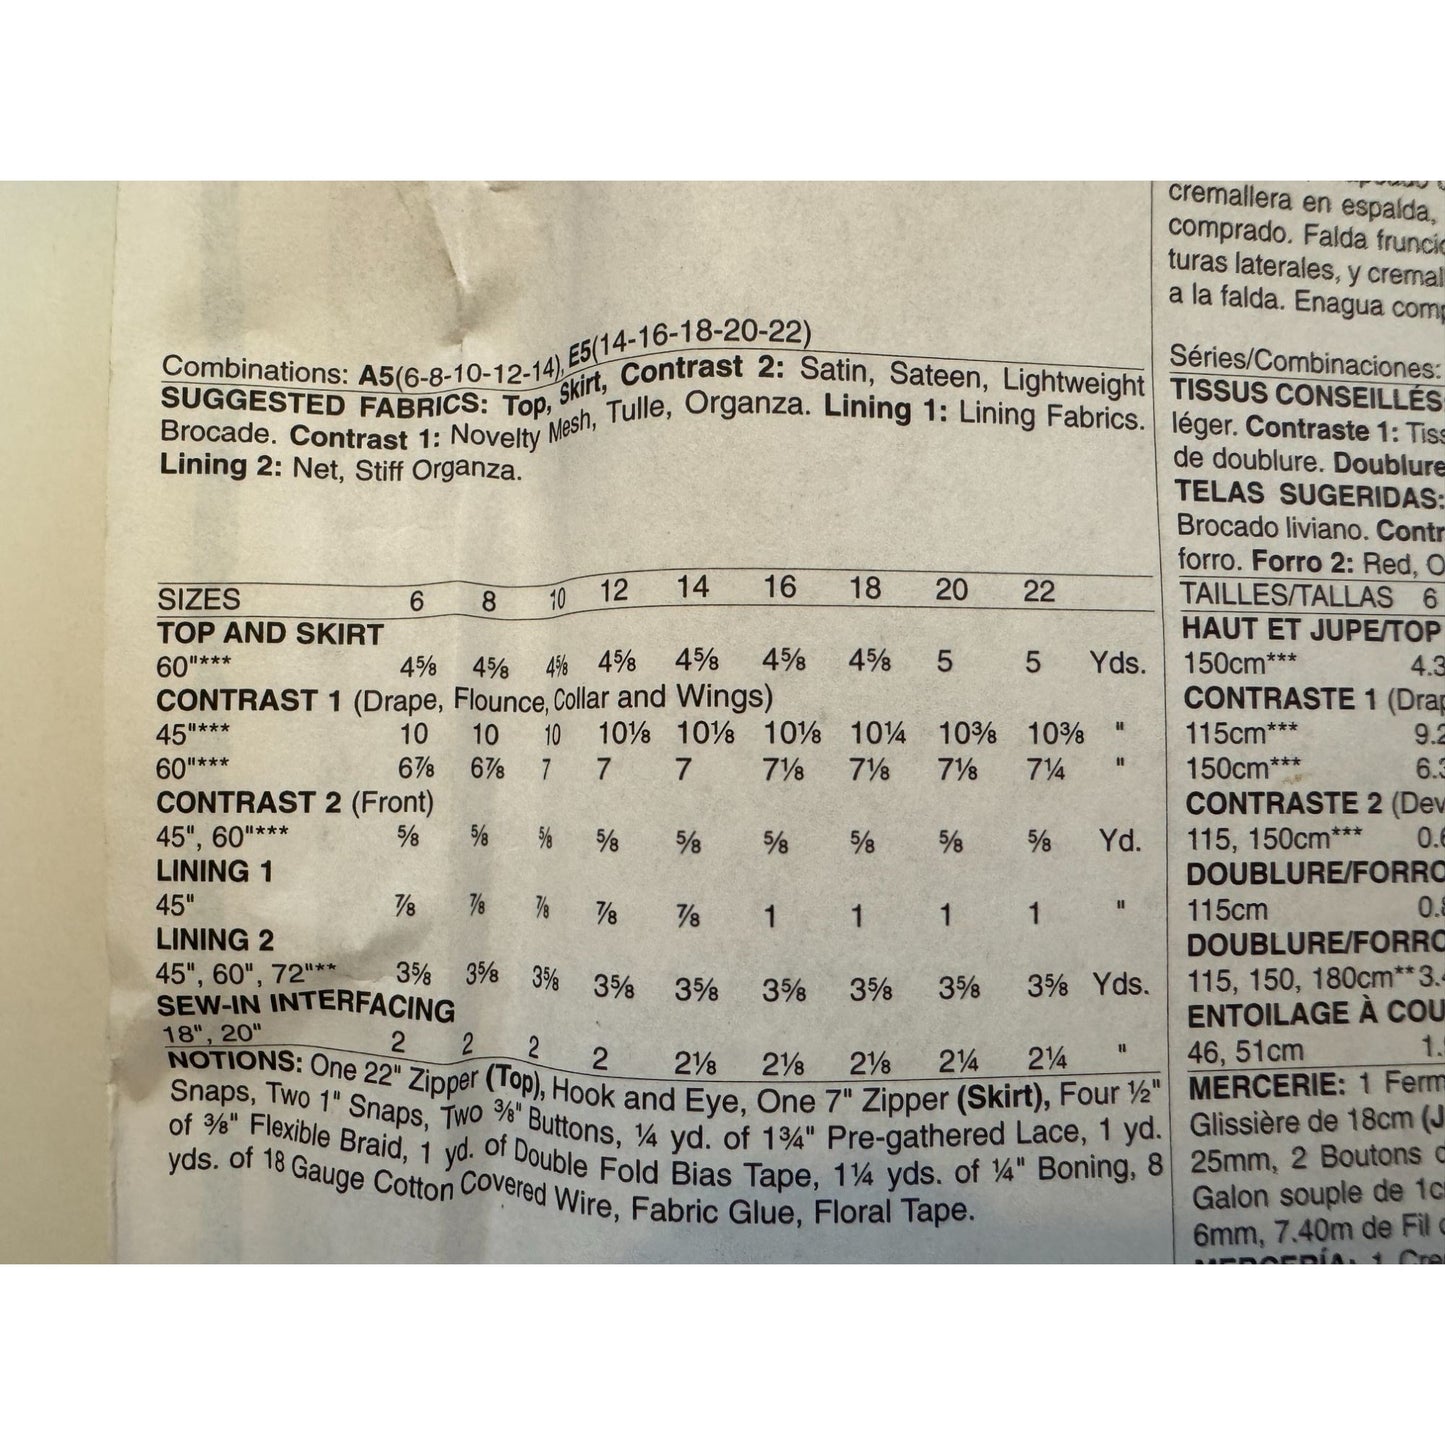 Combinations: A5(6-8-10-12-14), E5(14-16-18-20-22)
SUGGESTED FABRICS: Top, Skirt, Contrast 2: Satin, Sateen, Lightweight
Brocade. Contrast 1: Novelty Mesh, Tulle, Organza. Lining 1: Lining Fabrics.
Lining 2: Net, Stiff Organza.
SIZES 6 8 10 12 14 16 18 20 22
TOP AND SKIRT
60"*** 4⅝ 4⅝ 4⅝ 4⅝ 4⅝ 4⅝ 4⅝ 5 5 Yds.
CONTRAST 1 (Drape, Flounce, Collar and Wings)
45"*** 10 10 10 10⅛ 10⅛ 10⅛ 10¼ 10⅜ 10⅜ "
60"*** 6⅞ 6⅞ 7 7 7 7⅛ 7⅛ 7⅛ 7¼ "
CONTRAST 2 (Front)
45", 60"*** ⅝ ⅝ ⅝ ⅝ ⅝ ⅝ ⅝ ⅝ ⅝ Yd.
LINING 1
45" ⅞ ⅞ ⅞ ⅞ ⅞ 1 1 1 1 "
LINING 2
45", 60", 72"** 3⅝ 3⅝ 3⅝ 3⅝ 3⅝ 3⅝ 3⅝ 3⅝ 3⅝ Yds.
SEW-IN INTERFACING
18", 20" 2 2 2 2 2⅛ 2⅛ 2⅛ 2¼ 2¼ "
NOTIONS: One 22" Zipper (Top), Hook and Eye, One 7" Zipper (Skirt), Four ½"
Snaps, Two 1" Snaps, Two ⅜" Buttons, ¼ yd. of 1¾" Pre-gathered Lace, 1 yd.
of ⅜" Flexible Braid, 1 yd. of Double Fold Bias Tape, 1¼ yds. of ¼" Boning, 8
yds. of 18 Gauge Cotton Covered Wire, Fabric Glue, Floral Tape.
cremallera en espalda,
comprado. Falda frunci
turas laterales, y cremal
a la falda. Enagua com
Séries/Combinaciones:
TISSUS CONSEILLÉS
léger. Contraste 1: Tis
de doublure. Doublure
TELAS SUGERIDAS:
Brocado liviano. Contr
forro. Forro 2: Red, O
TAILLES/TALLAS 6
HAUT ET JUPE/TOP
150cm*** 4.3
CONTRASTE 1 (Drap
115cm*** 9.2
150cm*** 6.3
CONTRASTE 2 (Dev
115, 150cm*** 0.6
DOUBLURE/FORRO
115cm 0.8
DOUBLURE/FORRO
115, 150, 180cm** 3.
ENTOILAGE À COU
46, 51cm 1.
MERCERIE: 1 Ferm
Glissière de 18cm (J
25mm, 2 Boutons
Galon souple de 1c
6mm, 7.40m de Fil
MERCERÍA: 1 Cre